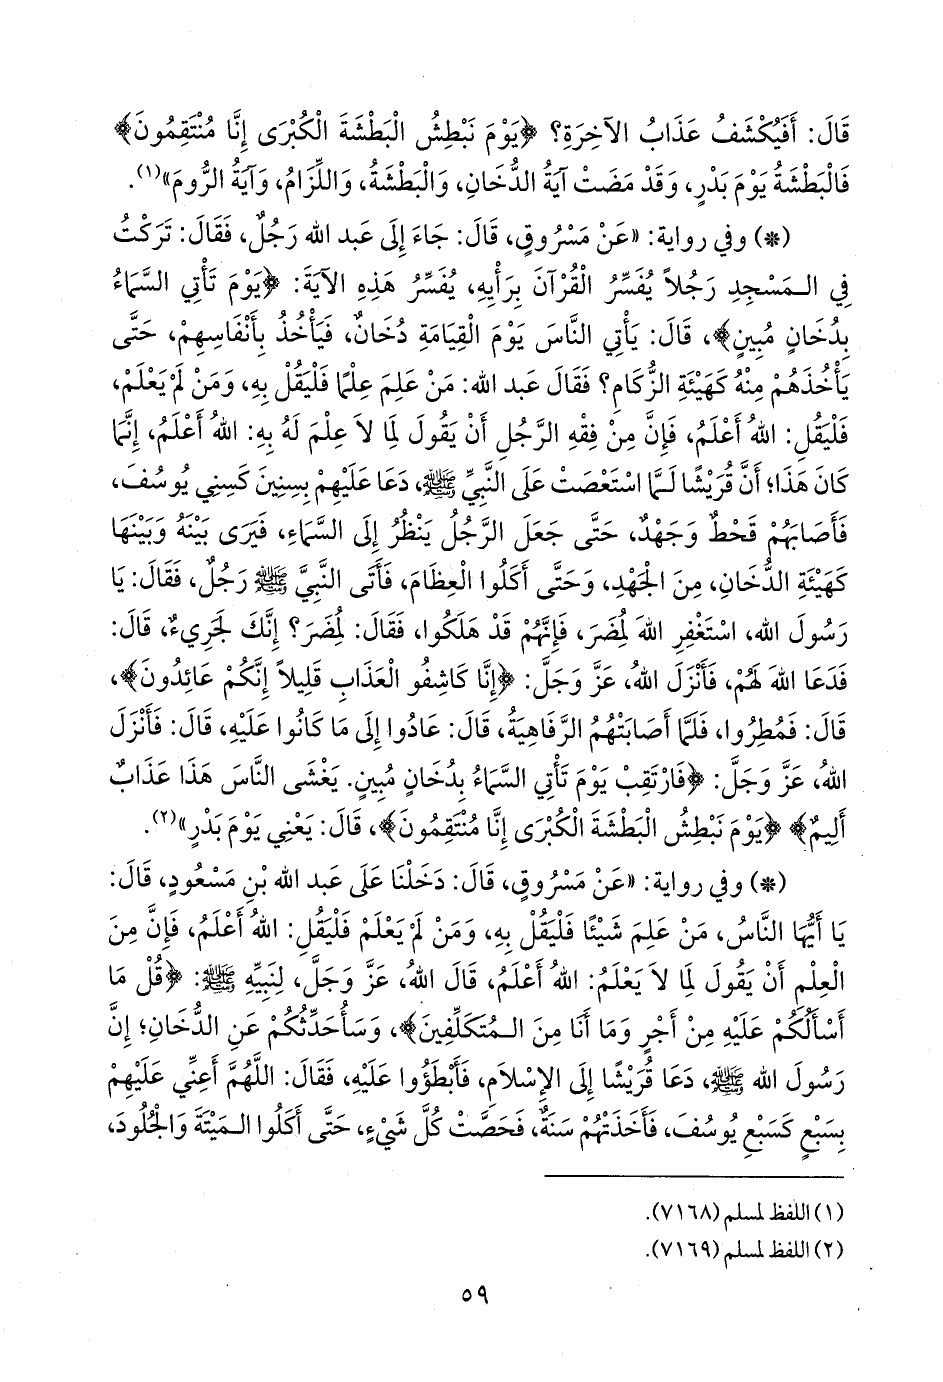 قَالَ: أَفَيُكْشَفُ عَذَابُ الآخِرَةِ؟ ﴿يَوْمَ نَبْطِشُ الْبَطْشَةَ الْكُبْرَى إِنَّا مُنْتَقِمُونَ﴾
فَالْبَطْشَةُ يَوْمَ بَدْرٍ، وَقَدْ مَضَتْ آيَةُ الدُّخَانِ، وَالْبَطْشَةُ، وَاللِّزَامُ، وَآيَةُ الرُّومِ»(١).
(*) وفي رواية: «عَنْ مَسْرُوقٍ، قَالَ: جَاءَ إِلَى عَبد الله رَجُلٌ، فَقَالَ: تَرَكْتُ
فِي الـمَسْجِدِ رَجُلاً يُفَسِّرُ الْقُرْآنَ بِرَأْيِهِ، يُفَسِّرُ هَذِهِ الآيَةَ: ﴿يَوْمَ تَأْتِي السَّمَاءُ
بِدُخَانٍ مُبِينٍ﴾، قَالَ: يَأْتِي النَّاسَ يَوْمَ الْقِيَامَةِ دُخَانٌ، فَيَأْخُذُ بِأَنْفَاسِهِمْ، حَتَّى
يَأْخُذَهُمْ مِنْهُ كَهَيْئَةِ الزُّكَامِ؟ فَقَالَ عَبد الله: مَنْ عَلِمَ عِلْمًا فَلْيَقُلْ بِهِ، وَمَنْ لَمْ يَعْلَمْ،
فَلْيَقُلِ: اللهُ أَعْلَمُ، فَإِنَّ مِنْ فِقْهِ الرَّجُلِ أَنْ يَقُولَ لِمَا لاَ عِلْمَ لَهُ بِهِ: اللهُ أَعْلَمُ، إِنَّمَا
كَانَ هَذَا؛ أَنَّ قُرَيْشًا لَـمَّا اسْتَعْصَتْ عَلَى النَّبِيِّ ﷺ، دَعَا عَلَيْهِمْ بِسِنِينَ كَسِنِي يُوسُفَ،
فَأَصَابَهُمْ قَحْطٌ وَجَهْدٌ، حَتَّى جَعَلَ الرَّجُلُ يَنْظُرُ إِلَى السَّمَاءِ، فَيَرَى بَيْنَهُ وَبَيْنَهَا
كَهَيْئَةِ الدُّخَانِ، مِنَ الْجَهْدِ، وَحَتَّى أَكَلُوا الْعِظَامَ، فَأَتَى النَّبِيَّ ﷺ رَجُلٌ، فَقَالَ: يَا
رَسُولَ الله، اسْتَغْفِرِ اللهَ لِمُضَرَ، فَإِنَّهُمْ قَدْ هَلَكُوا، فَقَالَ: لِمُضَرَ؟ إِنَّكَ لَجَرِيءٌ، قَالَ:
فَدَعَا اللهَ لَهُمْ، فَأَنْزَلَ اللهُ، عَزَّ وَجَلَّ: ﴿إِنَّا كَاشِفُو الْعَذَابِ قَلِيلاً إِنَّكُمْ عَائِدُونَ﴾،
قَالَ: فَمُطِرُوا، فَلَمَّا أَصَابَتْهُمُ الرَّفَاهِيَةُ، قَالَ: عَادُوا إِلَى مَا كَانُوا عَلَيْهِ، قَالَ: فَأَنْزَلَ
اللهُ، عَزَّ وَجَلَّ: ﴿فَارْتَقِبْ يَوْمَ تَأْتِي السَّمَاءُ بِدُخَانٍ مُبِينٍ. يَغْشَى النَّاسَ هَذَا عَذَابٌ
أَلِيمٌ﴾ ﴿يَوْمَ نَبْطِشُ الْبَطْشَةَ الْكُبْرَى إِنَّا مُنْتَقِمُونَ﴾، قَالَ: يَعْنِي يَوْمَ بَدْرٍ»(٢).
(*) وفي رواية: «عَنْ مَسْرُوقٍ، قَالَ: دَخَلْنَا عَلَى عَبد الله بْنِ مَسْعُودٍ، قَالَ:
يَا أَيُّهَا النَّاسُ، مَنْ عَلِمَ شَيْئًا فَلْيَقُلْ بِهِ، وَمَنْ لَمْ يَعْلَمْ فَلْيَقُلِ: اللهُ أَعْلَمُ، فَإِنَّ مِنَ
الْعِلْمِ أَنْ يَقُولَ لِمَا لاَ يَعْلَمُ: اللهُ أَعْلَمُ، قَالَ اللهُ، عَزَّ وَجَلَّ، لِنَبِيِّهِ ﷺ: ﴿قُلْ مَا
أَسْأَلُكُمْ عَلَيْهِ مِنْ أَجْرٍ وَمَا أَنَا مِنَ الـمُتَكَلِّفِينَ﴾، وَسَأُحَدِّثُكُمْ عَنِ الدُّخَانِ؛ إِنَّ
رَسُولَ الله ﷺ، دَعَا قُرَيْشًا إِلَى الإِسْلاَمِ، فَأَبْطَؤُوا عَلَيْهِ، فَقَالَ: اللَّهُمَّ أَعِنِّي عَلَيْهِمْ
بِسَبْعٍ كَسَبْعِ يُوسُفَ، فَأَخَذَتْهُمْ سَنَةٌ، فَحَصَّتْ كُلَّ شَيْءٍ، حَتَّى أَكَلُوا الـمَيْتَةَ وَالْجُلُودَ،
(١) اللفظ لمسلم (٧١٦٨).
(٢) اللفظ لمسلم (٧١٦٩).
٥٩